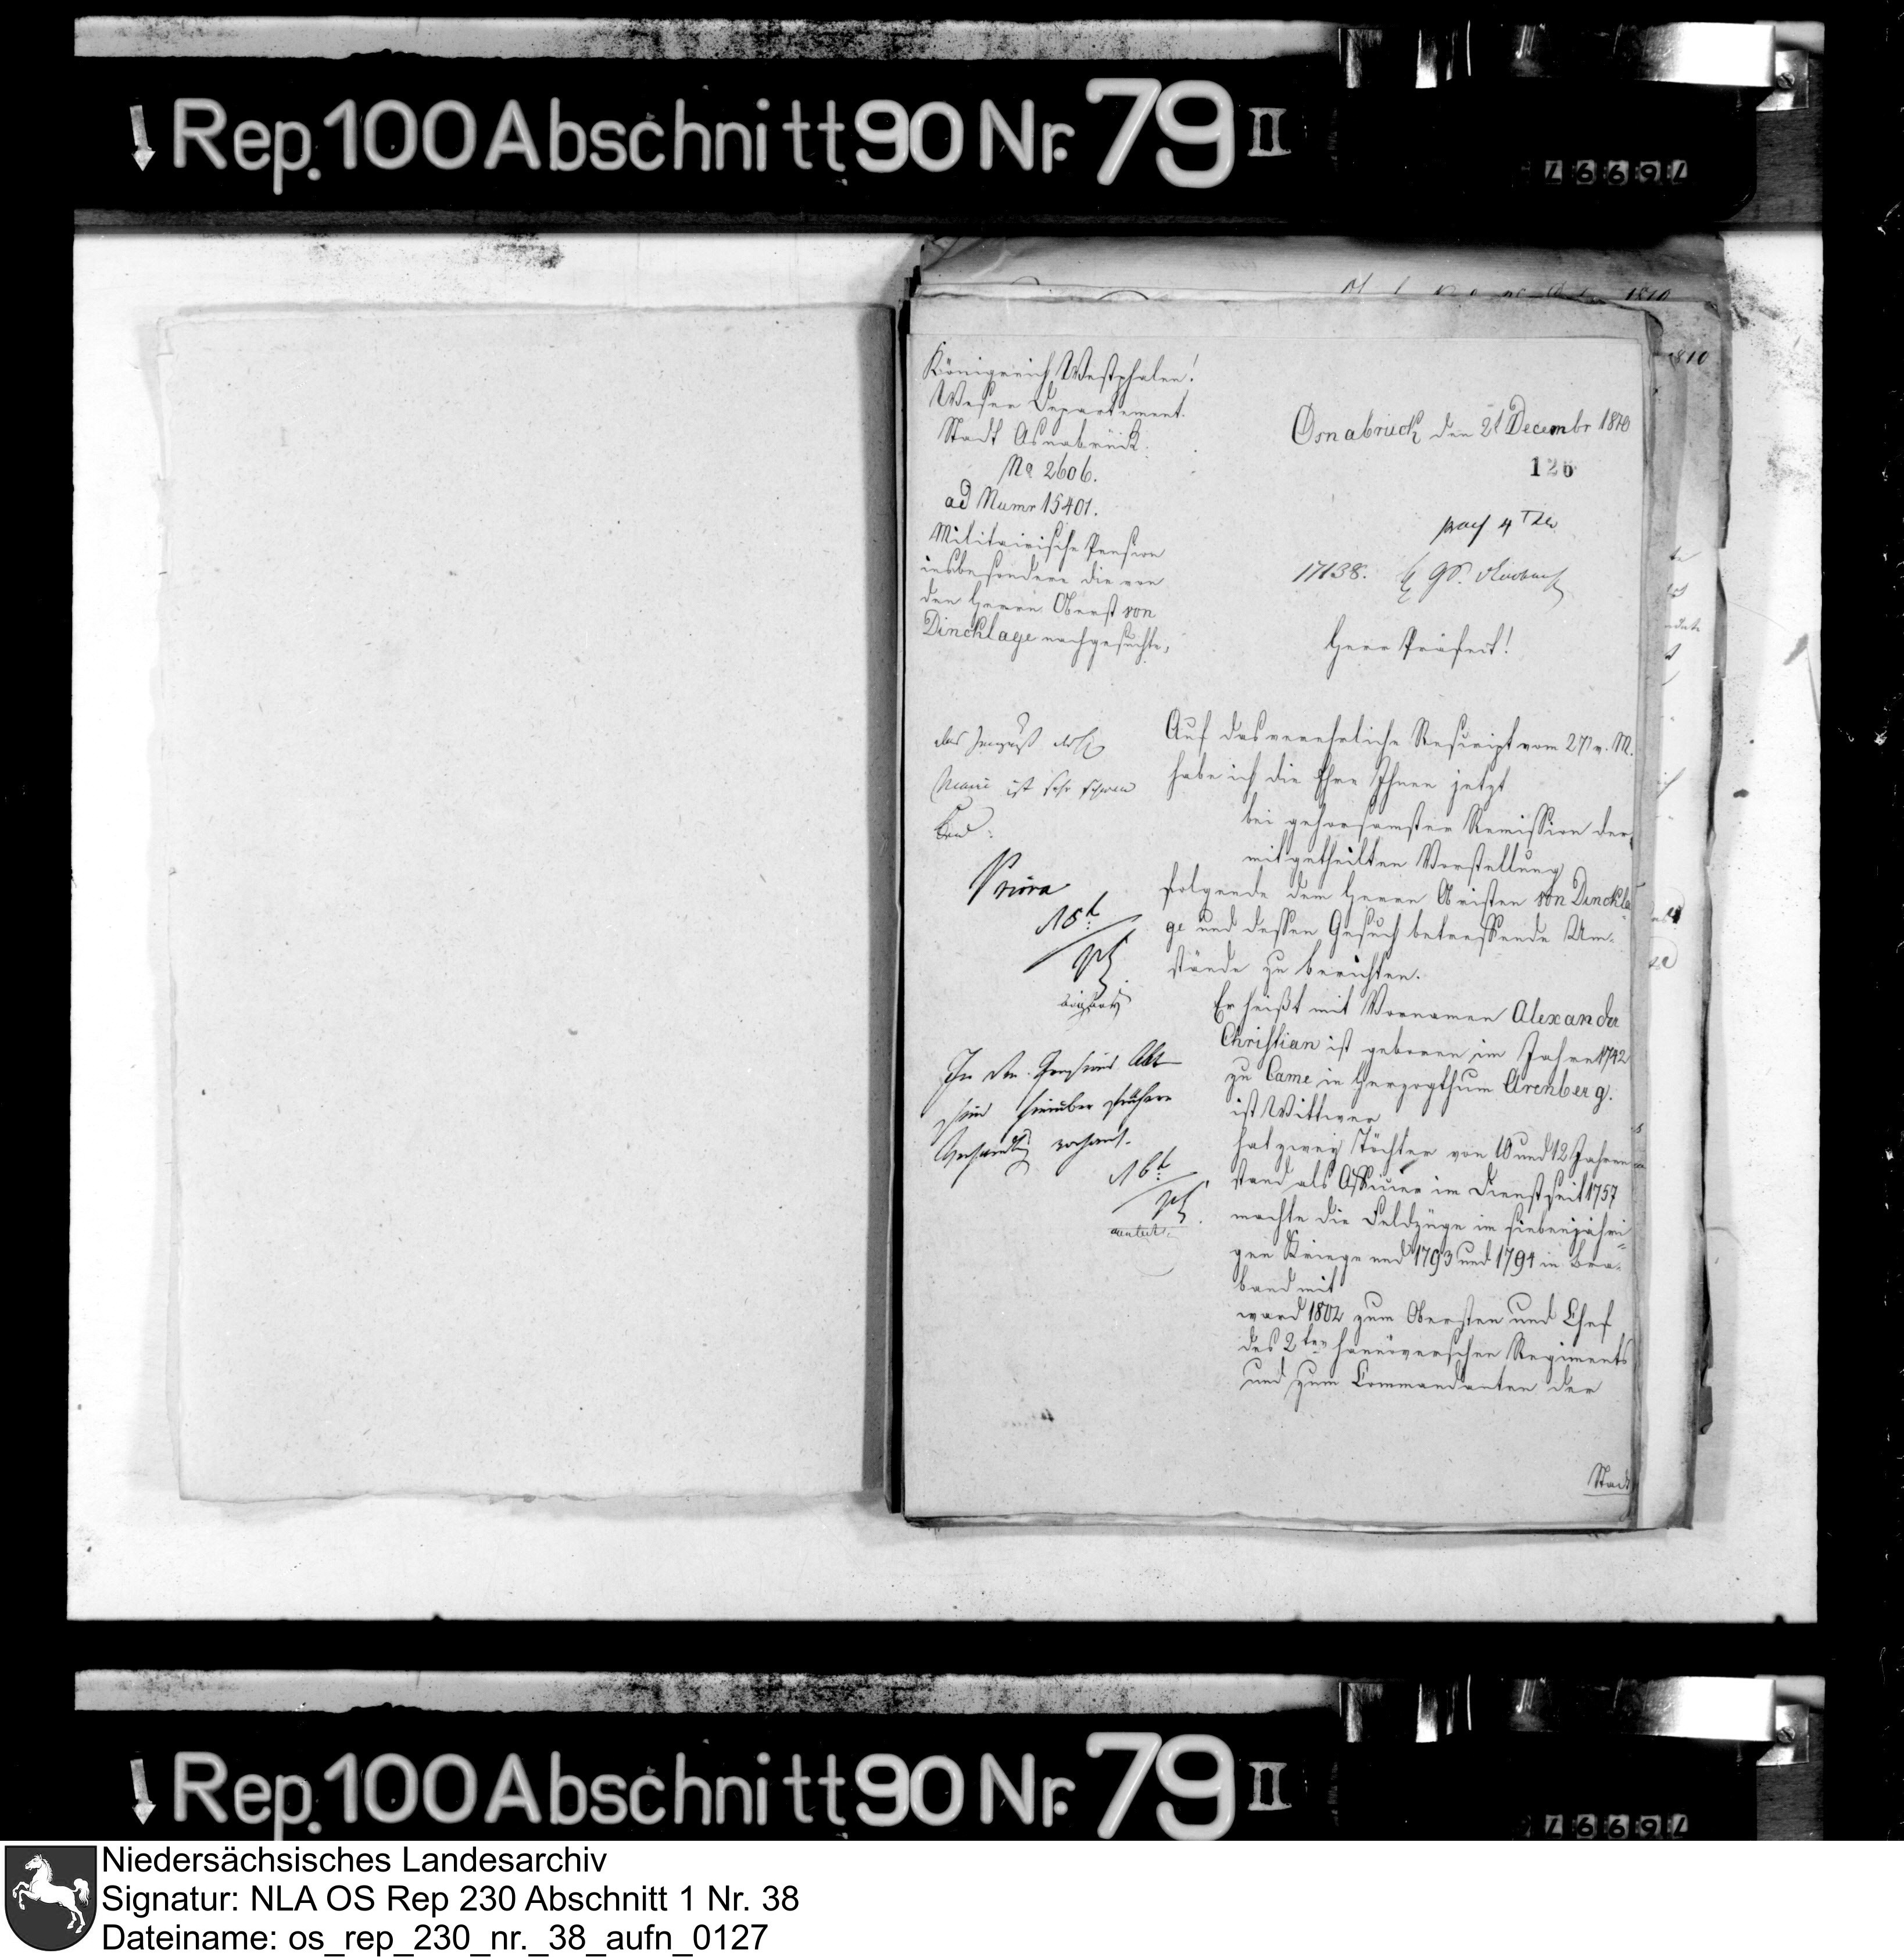 Rep. 100 Abschnitt 90 Nr. 79 II
76997
1810
Königreich Westphalen!
Weser Departement.
Stadt Osnabrück.
No 2606.
ad Numr 15401.
Militairische Pension
insbesondere die von
den Herrn Oberst von
Dincklage nachgesuchte,
Osnabruck den 21 Decembr 1810
126
17138.
Herr Präfect!
Auf das verehrliche Rescript vom 27 v. M.
habe ich die Ehre Ihnen jetzt
bei gehorsamster Remission der
mitgetheilten Vorstellung
folgende dem Herrn Obristen von Dinckla
ge und dessen Gesuch betreffende Um-
stände zu berichten.
Er heißt mit Vornamen Alexander
Christian ist geboren im Jahre 1742
zu Came in Herzogthum Arenberg.
ist Wittwer
hat zwey Töchter von 10 und 12 Jahren
stand als Officier im Dienst seit 1757
machte die Feldzüge im siebenjähri=
gen Kriege und 1793 und 1794 in Bra-
band mit
ward 1802 zum Obersten und Chef
des 2ten hannöverschen Regiments
und zum Commandanten der
Stadt
das
Maire ist sehr
Priora
18t
In den Pensions
hierüber frühere
16t
Rep. 100 Abschnitt 90 Nr. 79 II
76997
Niedersächsisches Landesarchiv
Signatur: NLA OS Rep 230 Abschnitt 1 Nr. 38
Dateiname: os_rep_230_nr._38_aufn_0127